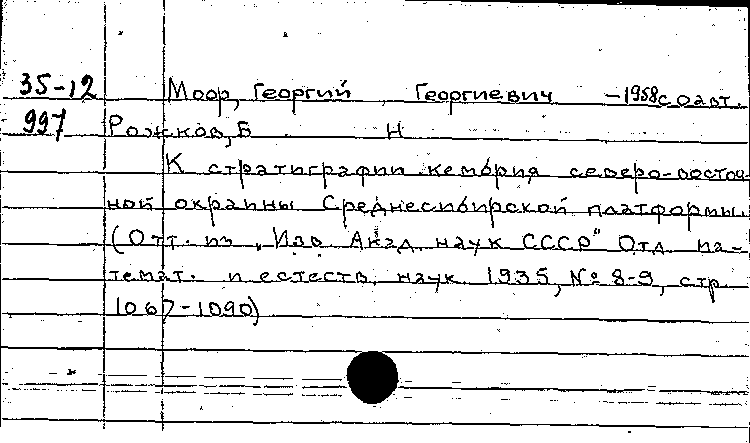 35-12 Моор, Георгий Георгиевич -1958 с оавт.
997 Рожков, Б Н
К стратиграфии кембрия северо-восточ-
ной окраины Среднесибирской платформы.
(Отт. из „Изв. Акад. наук СССР" Отд. ма-
темат. и естеств. наук 1935, № 8-9, стр
1067-1090)